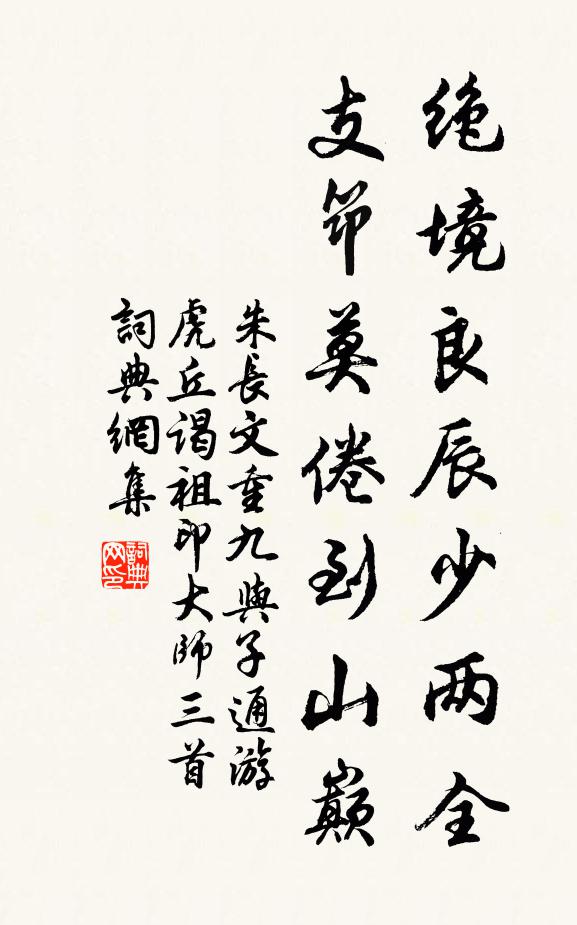 绝境良辰少两全
支筇莫倦到山巅
朱長文重九與子通游
虎丘谒祖印大师三首
詞典網集
詞典网印